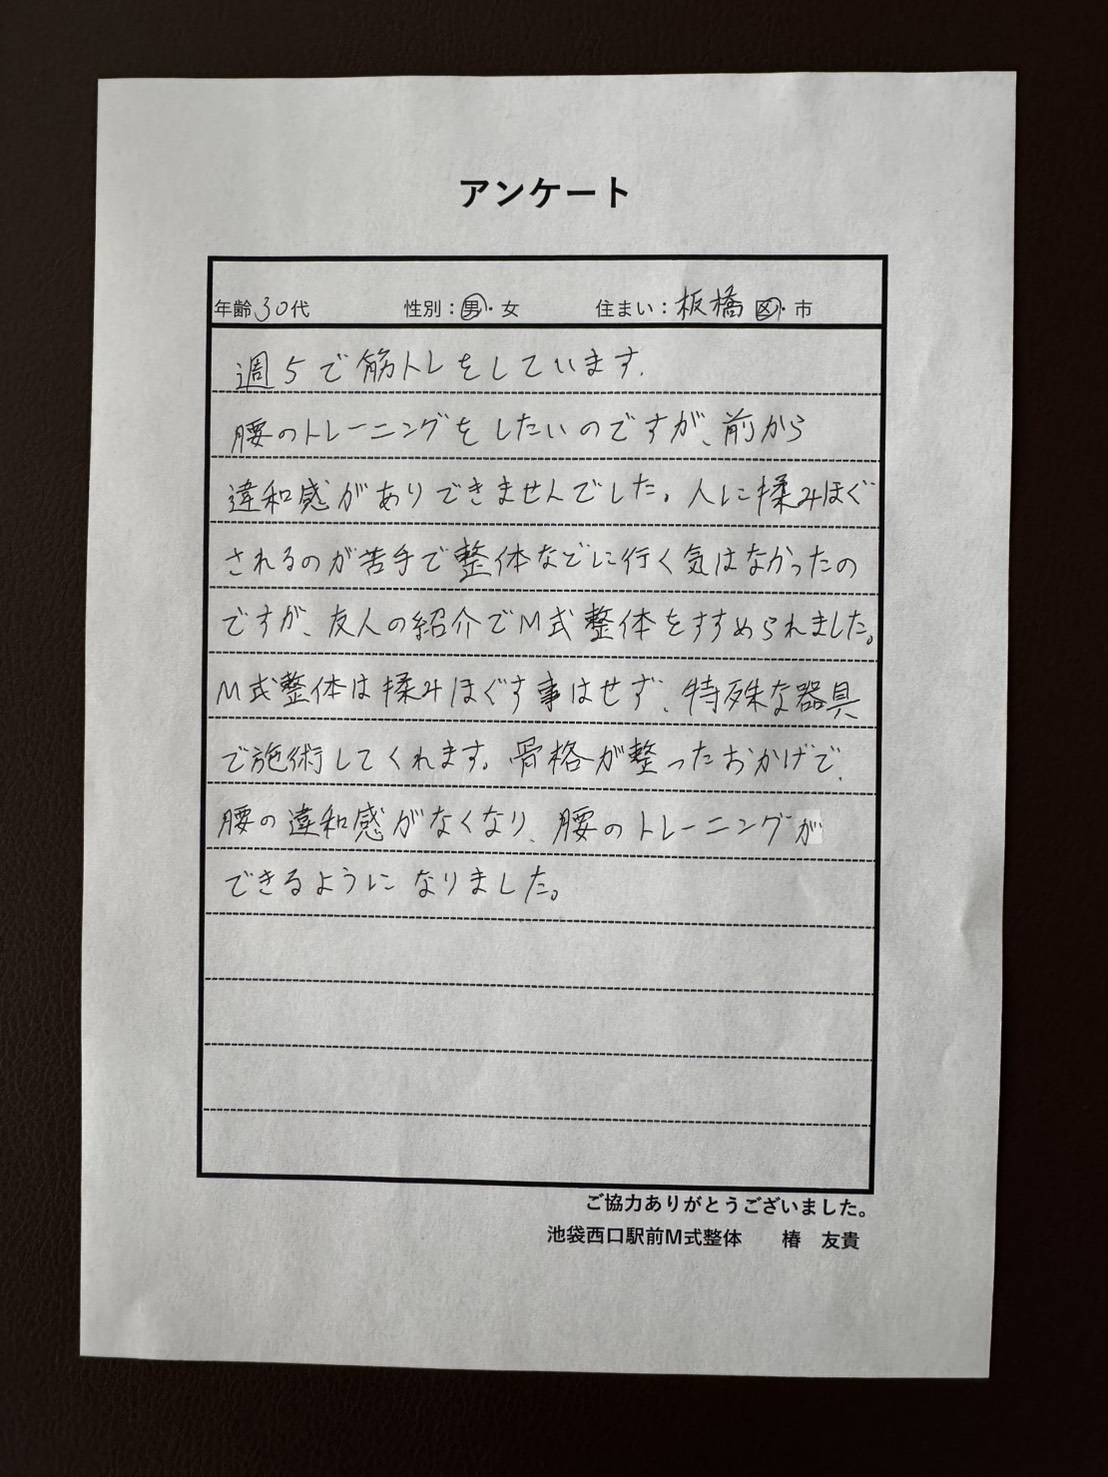 アンケート
年齢30代 性別：男・女 住まい：板橋 区・市
週5で筋トレをしています.
腰のトレーニングをしたいのですが、前から
違和感がありできませんでした。人に揉みほぐ
されるのが苦手で整体などに行く気はなかったの
ですが、友人の紹介でM式整体をすすめられました。
M式整体は揉みほぐす事はせず、特殊な器具
で施術してくれます。骨格が整ったおかげで、
腰の違和感がなくなり、腰のトレーニングが
できるようになりました。
ご協力ありがとうございました。
池袋西口駅前M式整体 椿 友貴